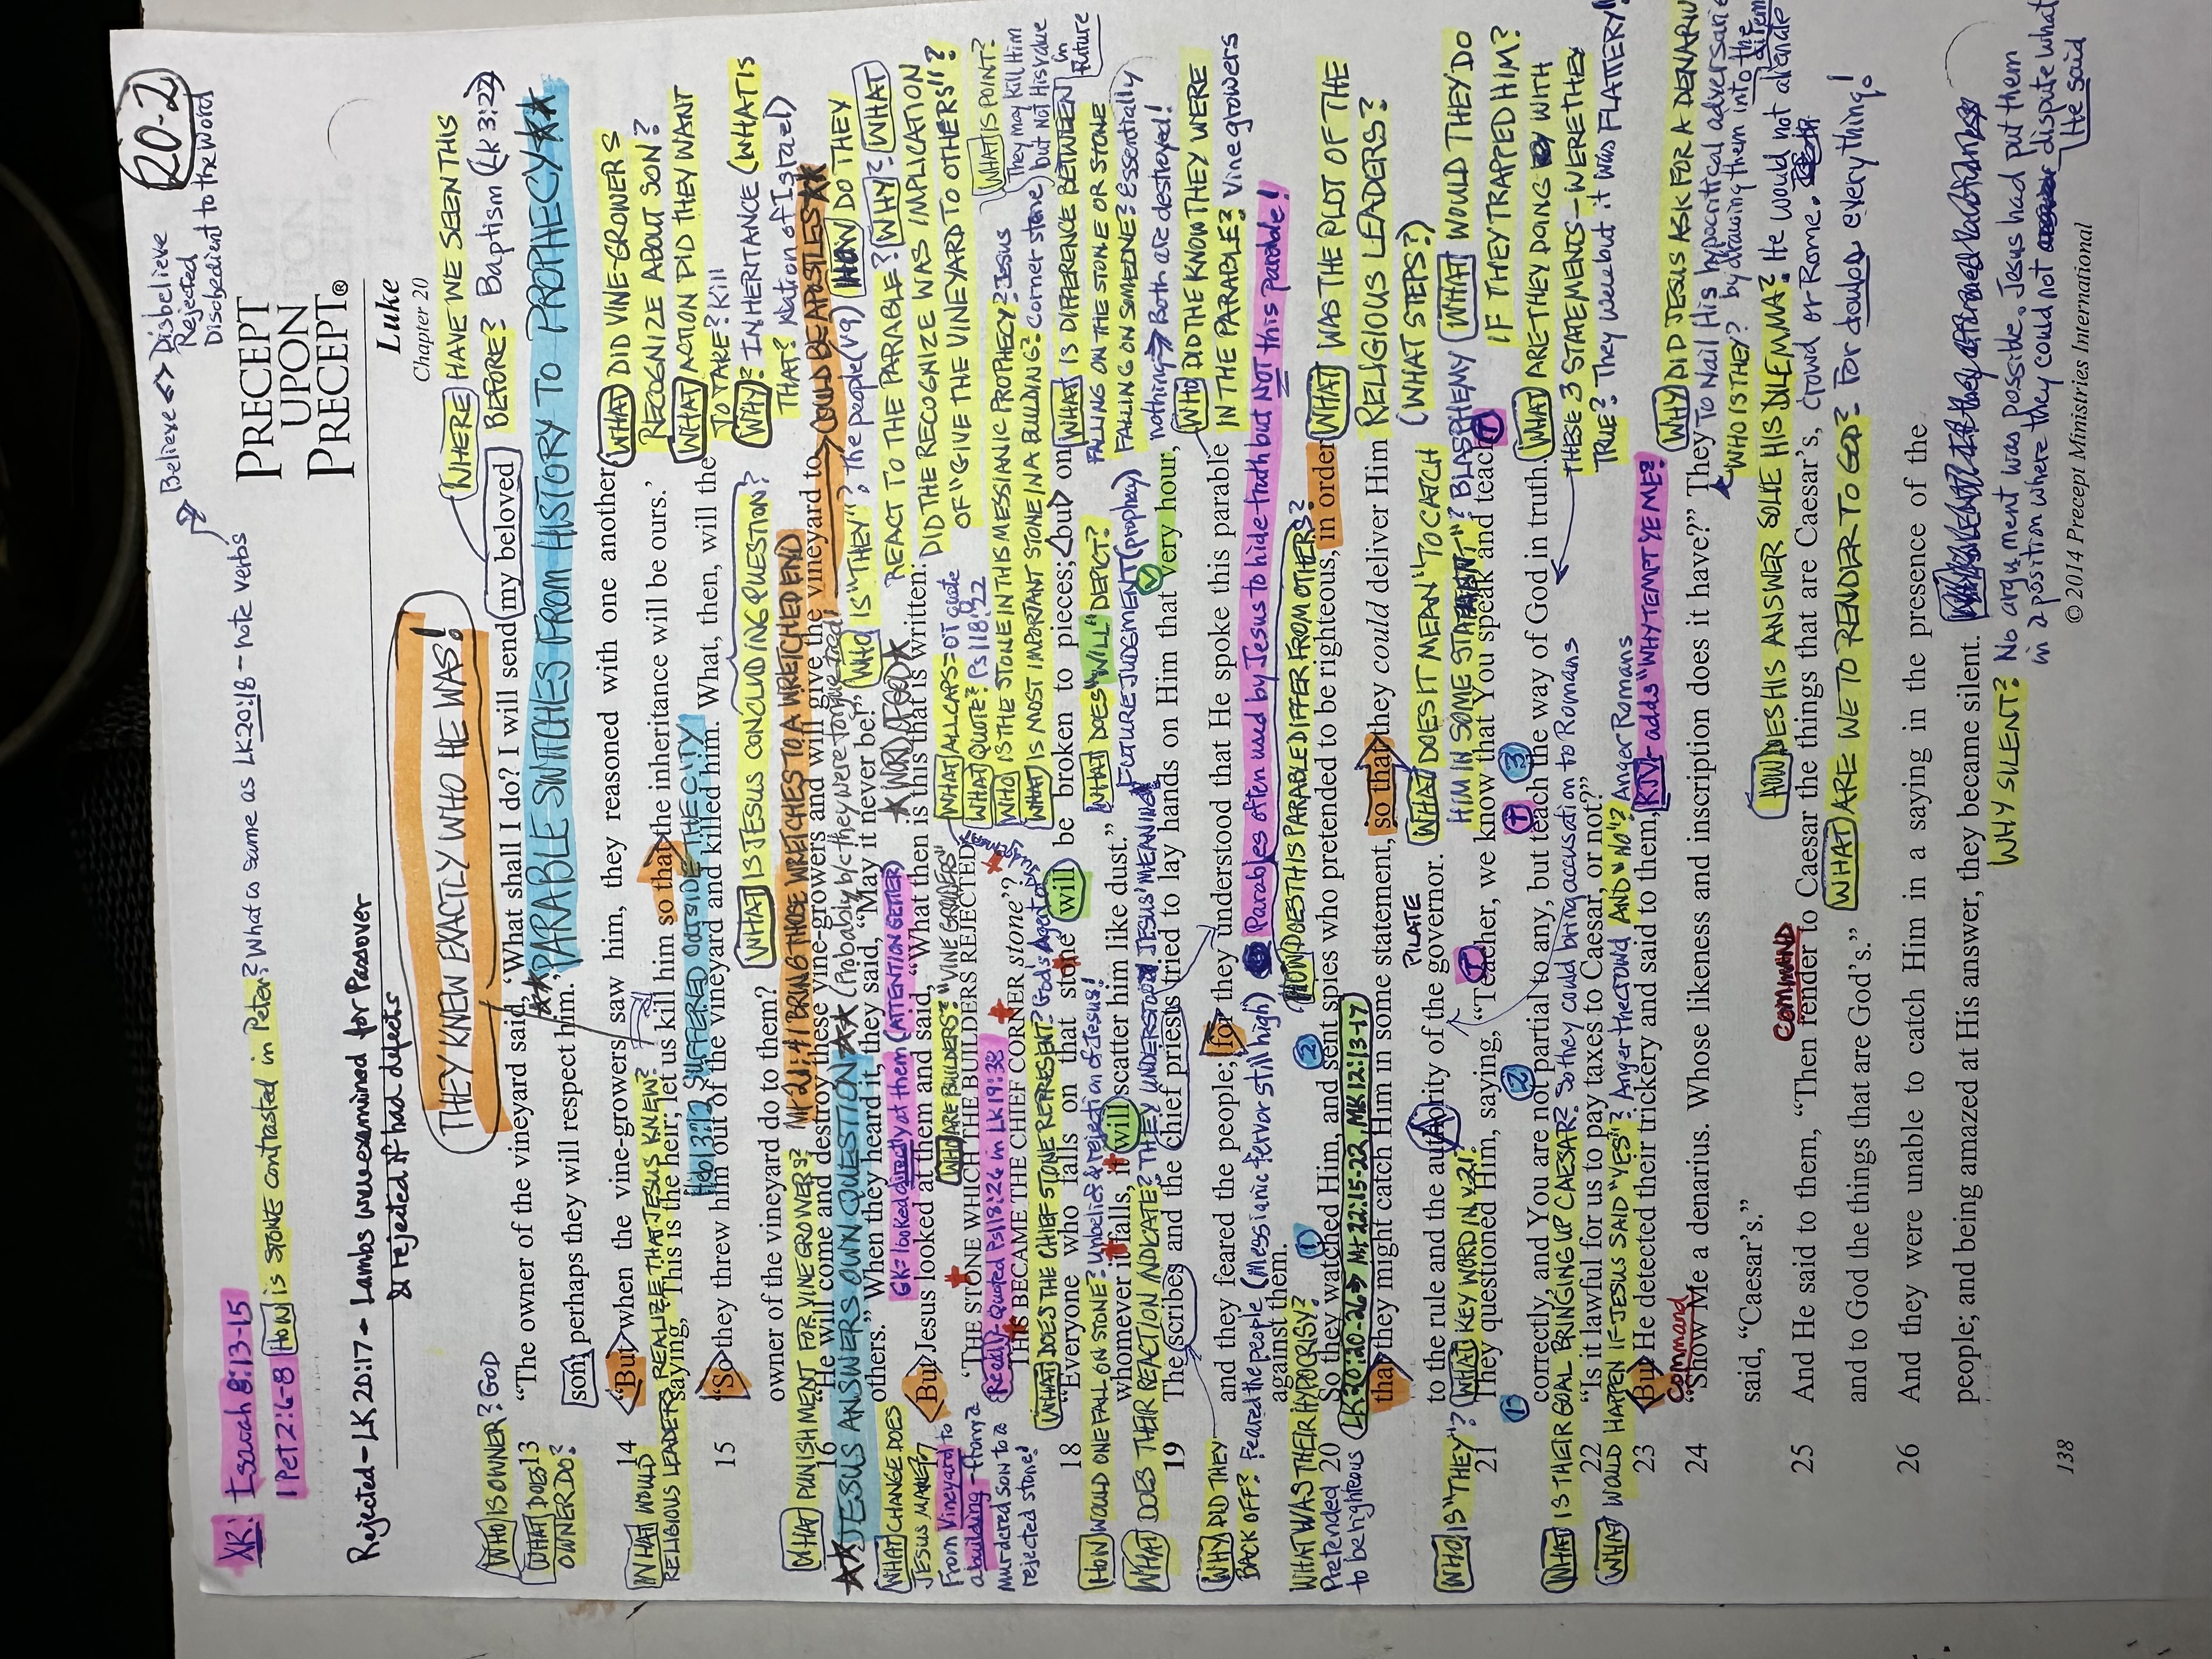 20-2
XR: Isaiah 8:13-15
1 Pet 2:6-8 HOW is STONE contrasted in Peter? What is same as LK 20:18 - note verbs
Believe <-> Disbelieve
Rejected
Disobedient to the Word
PRECEPT
UPON
PRECEPT®
Rejected - LK 20:17 - Lambs were examined for Passover
& rejected if had defects
Luke
Chapter 20
THEY KNEW EXACTLY WHO HE WAS!
WHERE HAVE WE SEEN THIS
BEFORE? Baptism (Lk 3:22)
WHO IS OWNER? GOD
WHAT DOES
OWNER DO?
13 “The owner of the vineyard said, ‘What shall I do? I will send my beloved
son; perhaps they will respect him.’
★★ PARABLE SWITCHES FROM HISTORY TO PROPHECY ★★
14 “But when the vine-growers saw him, they reasoned with one another,
saying, ‘This is the heir; let us kill him so that the inheritance will be ours.’
WHAT DID VINE-GROWERS
RECOGNIZE ABOUT SON?
WHAT ACTION DID THEY WANT
TO TAKE? Kill
WHY? INHERITANCE (WHAT IS
THAT? Nation of Israel)
WHAT WOULD
RELIGIOUS LEADERS REALIZE THAT JESUS KNEW?
Heb 13:12 SUFFERED OUTSIDE THE CITY
15 “So they threw him out of the vineyard and killed him. What, then, will the
owner of the vineyard do to them?
WHAT IS JESUS CONCLUDING QUESTION?
WHAT PUNISHMENT FOR VINE GROWERS? Mt 21:41 BRING THOSE WRETCHES TO A WRETCHED END
COULD BE APOSTLES ★★
16 “He will come and destroy these vine-growers and will give the vineyard to
others.” When they heard it, they said, “May it never be!”
★★ JESUS ANSWERS OWN QUESTION ★★
WHO IS "THEY"? The people (v9)
HOW DO THEY
REACT TO THE PARABLE? WHY? WHAT
DID THE RECOGNIZE WAS IMPLICATION
OF "GIVE THE VINEYARD TO OTHERS"?
GK= looked directly at them (ATTENTION GETTER)
★ WORD OF GOD ★
WHAT CHANGE DOES
JESUS MAKE?
From Vineyard to
a building - from a
murdered son to a
rejected stone!
17 But Jesus looked at them and said, “What then is this that is written:
‘THE STONE WHICH THE BUILDERS REJECTED,
THIS BECAME THE CHIEF CORNER stone’?
WHO ARE BUILDERS? "VINE GROWERS"
(Read) Quoted Ps 118:26 in LK 19:38
WHAT ALL CAPS = OT quote
WHAT QUOTE? Ps 118:22
WHO IS THE STONE IN THIS MESSIANIC PROPHECY? Jesus
WHAT IS MOST IMPORTANT STONE IN A BUILDING? Corner stone
WHAT IS POINT?
They may kill Him
but not His value
in
future
WHAT DOES THE CHIEF STONE REPRESENT? God's Agent of Judgment
18 “Everyone who falls on that stone will be broken to pieces; but on
whomever it falls, it will scatter him like dust.”
HOW WOULD ONE FALL ON STONE? Unbelief & rejection of Jesus!
WHAT DOES "WILL" DEPICT?
FUTURE JUDGMENT (prophecy)
WHAT IS DIFFERENCE BETWEEN
FALLING ON THE STONE OR STONE
FALLING ON SOMEONE? Essentially
nothing → Both are destroyed!
WHAT DOES THEIR REACTION INDICATE? THEY UNDERSTOOD JESUS' MEANING
19 The scribes and the chief priests tried to lay hands on Him that very hour,
and they feared the people; for they understood that He spoke this parable
against them.
WHO DID THE KNOW THEY WERE
IN THE PARABLE? Vine growers
WHY DID THEY
BACK OFF? Feared the people (Messianic fervor still high)
Parables often used by Jesus to hide truth but NOT this parable!
HOW DOES THIS PARABLE DIFFER FROM OTHERS?
WHAT WAS THEIR HYPOCRISY?
Pretended
to be righteous
20 So they watched Him, and sent spies who pretended to be righteous, in order
that they might catch Him in some statement, so that they could deliver Him
to the rule and the authority of the governor.
LK 20:20-26 → Mt 22:15-22, MK 12:13-17
PILATE
WHAT WAS THE PLOT OF THE
RELIGIOUS LEADERS?
(WHAT STEPS?)
WHAT DOES IT MEAN "TO CATCH
HIM IN SOME STATEMENT"? BLASPHEMY
WHAT WOULD THEY DO
IF THEY TRAPPED HIM?
WHO IS "THEY"? WHAT KEY WORD IN v21?
21 They questioned Him, saying, “Teacher, we know that You speak and teach
correctly, and You are not partial to any, but teach the way of God in truth.
WHAT ARE THEY DOING WITH
THESE 3 STATEMENTS - WERE THEY
TRUE? They were but it was FLATTERY!
WHAT IS THEIR GOAL BRINGING UP CAESAR? So they could bring accusation to Romans
22 “Is it lawful for us to pay taxes to Caesar, or not?”
WHAT WOULD HAPPEN IF JESUS SAID "YES"? Anger the crowd AND "NO"? Anger Romans
23 But He detected their trickery and said to them,
KJV adds "WHY TEMPT YE ME?"
Command
24 “Show Me a denarius. Whose likeness and inscription does it have?” They
said, “Caesar’s.”
WHY DID JESUS ASK FOR A DENARIUS
To Nail His hypocritical adversaries
WHO IS THEY? by drawing them into the
HOW DOES HIS ANSWER SOLVE HIS DILEMMA? He would not alienate
crowd or Rome.
COMMAND
25 And He said to them, “Then render to Caesar the things that are Caesar’s,
and to God the things that are God’s.”
WHAT ARE WE TO RENDER TO GOD? For everything!
26 And they were unable to catch Him in a saying in the presence of the
people; and being amazed at His answer, they became silent.
WHY SILENT? No argument was possible. Jesus had put them
in a position where they could not dispute what
He said
138
© 2014 Precept Ministries International